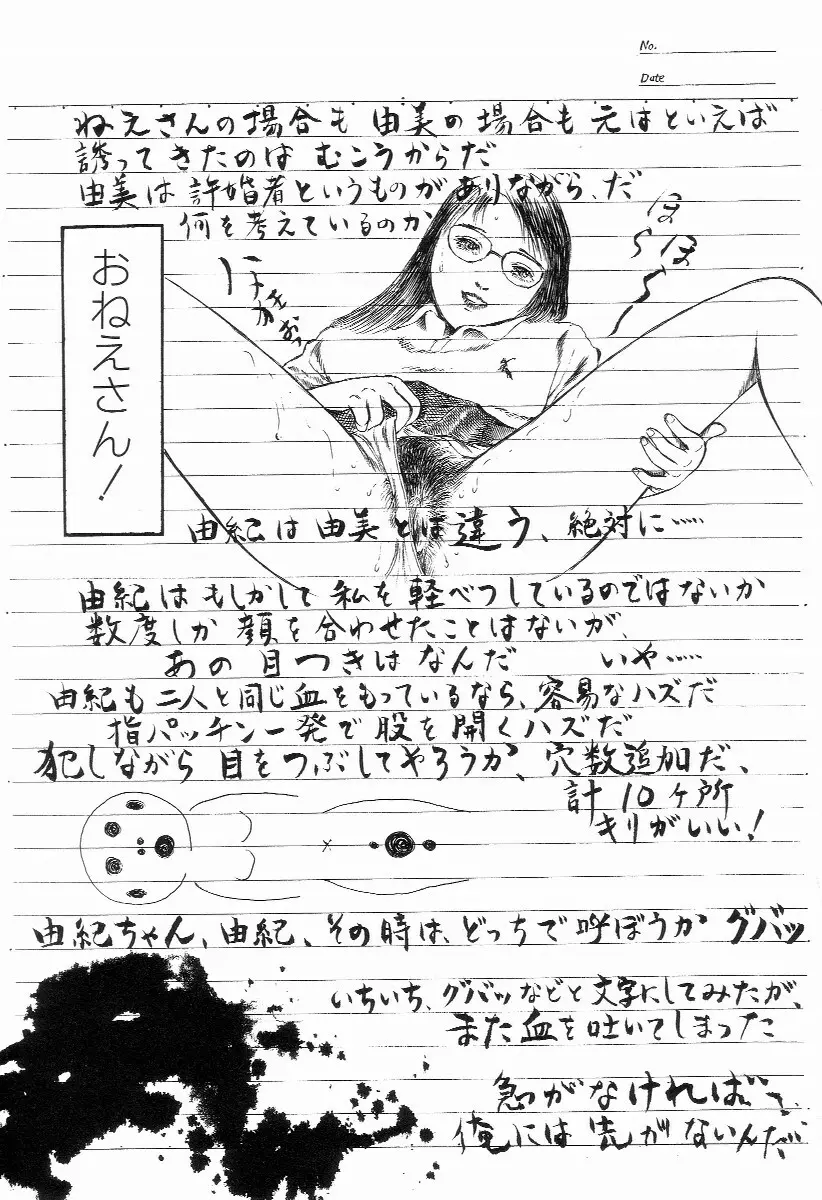 No.
Date
ねえさんの場合も 由美の場合も 元はといえば
誘ってきたのは むこうからだ
由美は許婚者というものがありながら、だ
何を考えているのか
おねえさん!
ほらほら～
由紀は由美とは違う、絶対に……
由紀は もしかして 私を軽べつしているのではないか
数度しか 顔を合わせたことはないが、
あの目つきは なんだ いや……
由紀も二人と同じ血をもっているなら、容易なハズだ
指パッチン一発で股を開くハズだ
犯しながら 目をつぶしてやろうか、穴数追加だ、
計10ヶ所
キリがいい!
由紀ちゃん、由紀、その時は、どっちで呼ぼうか グバッ
いちいち、グバッなどと文字にしてみたが、
また血を吐いてしまった
急がなければ…
俺には先がないんだ…